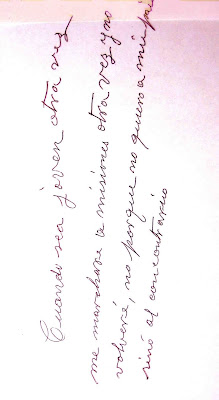 Cuando sea joven otra vez
me marchare a misiones otra vez y no
volveré, no porque no quiero a mi
sinó al concontrario